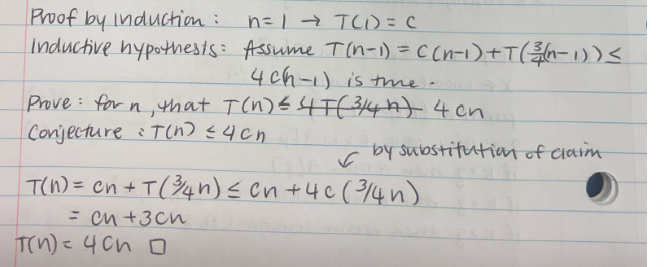 Proof by induction: n=1 → T(1) = C
Inductive hypothesis: Assume T(n-1) = C(n-1) + T(3/4(n-1)) ≤
4c(n-1) is true.
Prove: for n, that T(n) ≤ 4cn
Conjecture: T(n) ≤ 4cn
by substitution of claim
T(n) = cn + T(3/4n) ≤ cn + 4c(3/4n)
= cn + 3cn
T(n) = 4cn □